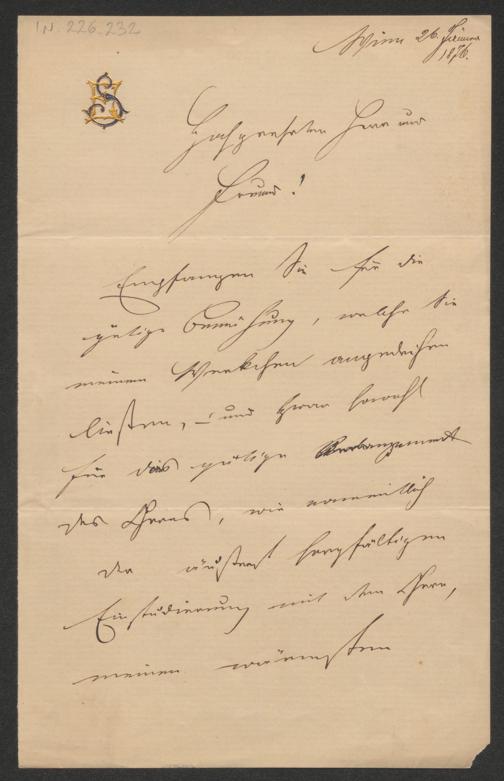 IN. 226.232
Wien 26. Februar
1876.
Hochgeehrter Herr und
Freund!
Empfangen Sie für die
gütige Bemühung, welche Sie
meinen Werkchen angedeihen
ließen, – und zwar sowohl
für das gütige Arrangement
des Chores, wie namentlich
der äußerst sorgfältigen
Einstudierung mit dem Chore,
meinen wärmsten